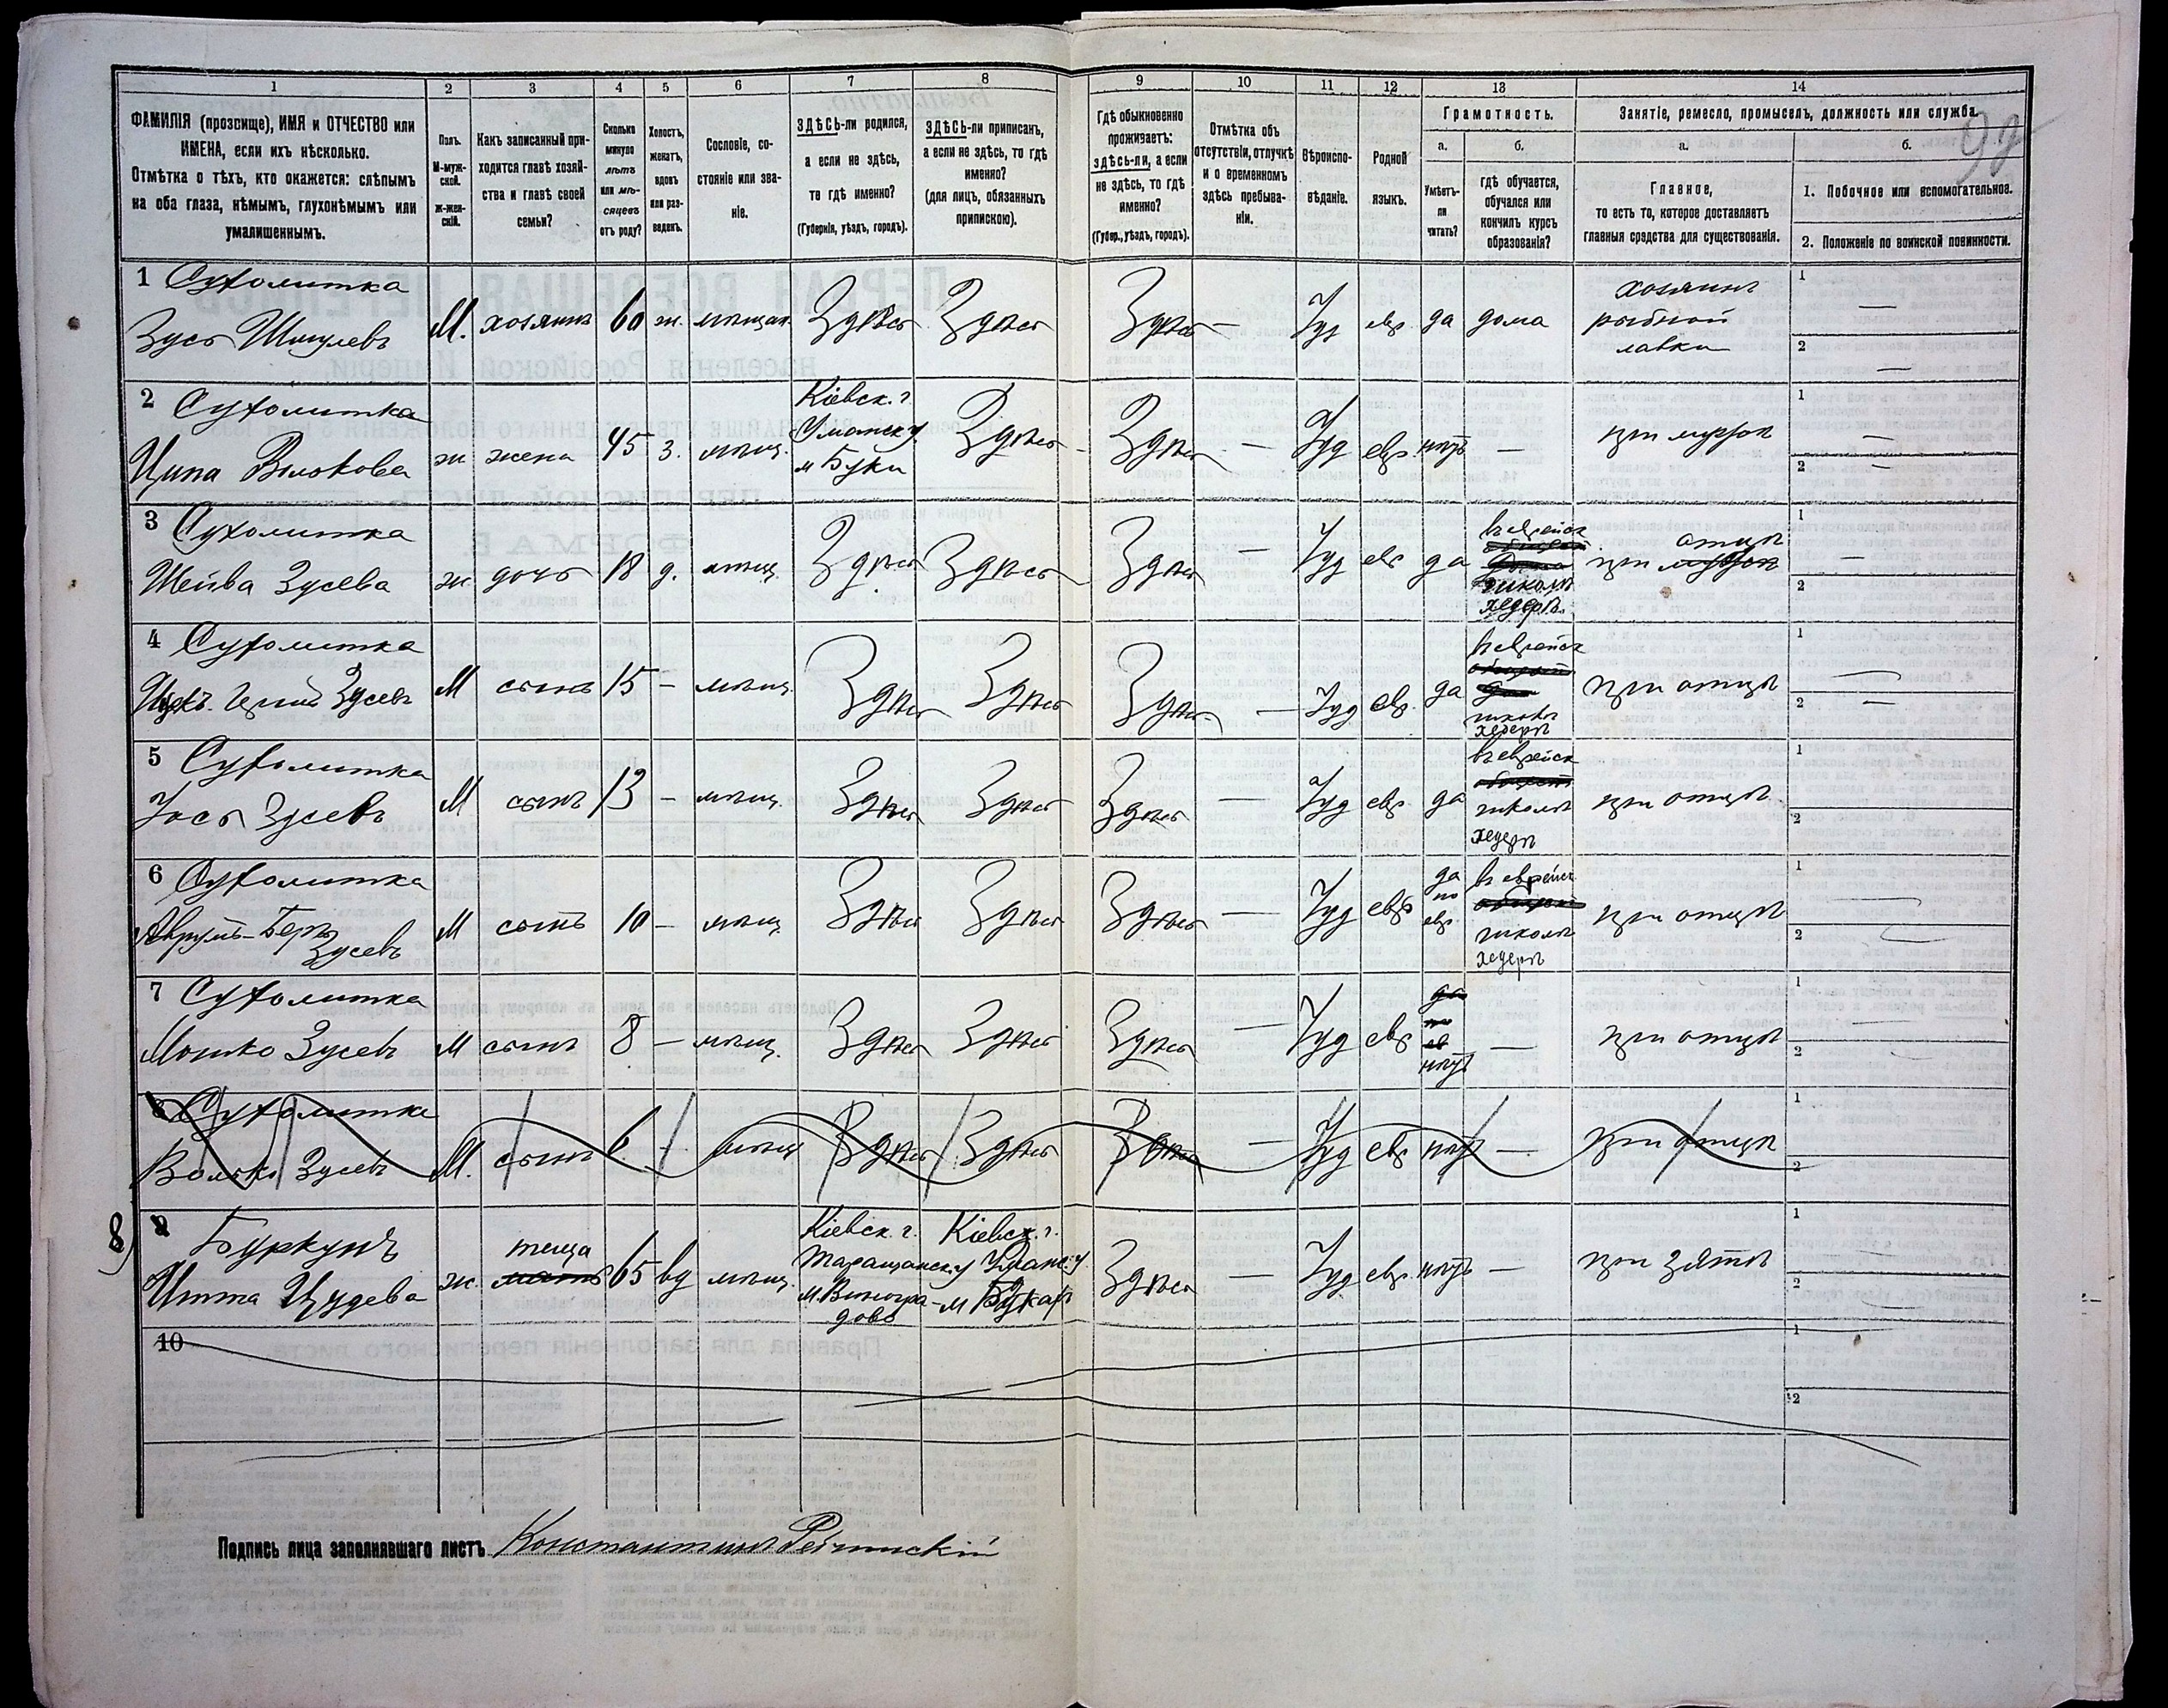 1 2 3 4 5 6 7 8 9 10 11 12 13 14
ФАМИЛІЯ (прозвище), ИМЯ и ОТЧЕСТВО или
ИМЕНА, если ихъ нѣсколько.
Отмѣтка о тѣхъ, кто окажется: слѣпымъ
на оба глаза, нѣмымъ, глухонѣмымъ или
умалишеннымъ.
Полъ.
М-муж-
ской.
Ж-жен-
скій.
Какъ записанный при-
ходится главѣ хозяй-
ства и главѣ своей
семьи?
Сколько
минуло
лѣтъ
или мѣ-
сяцевъ
отъ роду?
Холостъ,
женатъ,
вдовъ
или раз-
веденъ.
Сословіе, со-
стояніе или зва-
ніе.
ЗДѢСЬ-ли родился,
а если не здѣсь,
то гдѣ именно?
(Губернія, уѣздъ, городъ).
ЗДѢСЬ-ли приписанъ,
а если не здѣсь, то гдѣ
именно?
(для лицъ, обязанныхъ
припискою).
Гдѣ обыкновенно
проживаетъ:
здѣсь-ли, а если
не здѣсь, то гдѣ
именно?
(Губер., уѣздъ, городъ).
Отмѣтка объ
отсутствіи, отлучкѣ
и о временномъ
здѣсь пребыва-
ніи.
Вѣроиспо-
вѣданіе.
Родной
языкъ.
Грамотность.
а.
Умѣетъ-
ли
читать?
б.
гдѣ обучается,
обучался или
кончилъ курсъ
образованія?
Занятіе, ремесло, промыселъ, должность или служба.
а.
Главное,
то есть то, которое доставляетъ
главныя средства для существованія.
б.
1. Побочное или вспомогательное.
2. Положеніе по воинской повинности.
1 Сухолитка
Зусь Шмулевъ М. хозяинъ 60 ж. мѣщан. Здѣсь Здѣсь Здѣсь — Іуд евр. да дома
хозяинъ
рыбной
лавки
1 —
2 —
2 Сухолитка
Ципа Вольковa ж жена 45 з. мѣщ.
Кіевск. г.
Уманск у.
м Буки
Здѣсь Здѣсь — Іуд евр. нѣтъ — при мужѣ
1 —
2 —
3 Сухолитка
Шейва Зусева ж. дочь 18 д. мѣщ. Здѣсь Здѣсь Здѣсь — Іуд евр да
въ еврейск
школѣ
хедерѣ.
при отцѣ
1 —
2
4 Сухолитка
Зусевъ М сынъ 15 — мѣщ. Здѣсь Здѣсь Здѣсь — Іуд евр. да
въ еврейск
школѣ
хедерѣ
при отцѣ
1 —
2 —
5 Сухолитка
Іось Зусевъ М сынъ 13 — мѣщ. Здѣсь Здѣсь Здѣсь — Іуд евр. да
въ еврейск
школѣ
хедерѣ
при отцѣ
1
2
6 Сухолитка
Аврумъ-Беръ
Зусевъ
М сынъ 10 — мѣщ. Здѣсь Здѣсь Здѣсь — Іуд евр
да
по
евр.
въ еврейск
школѣ
хедерѣ
при отцѣ
1 —
2 —
7 Сухолитка
Мошко Зусевъ М сынъ 8 — мѣщ. Здѣсь Здѣсь Здѣсь — Іуд евр
да
по
ев
нѣтъ
— при отцѣ
1 —
2 —
8 Сухолитка
Волько Зусевъ М. сынъ 6 — мѣщ Здѣсь Здѣсь Здѣсь — Іуд евр нѣтъ — при отцѣ
1
2
8) 9 Буркунъ
Итта Цудева ж. теща мать 65 вд мѣщ.
Кіевск. г.
Таращанск. у
м. Виногра-
дово
Кіевск. г.
Уманс. у
м Букахъ
Здѣсь — Іуд евр. нѣтъ — при зятѣ
1 —
2 —
10
1
2
Подпись лица заполнявшаго листъ Константинъ